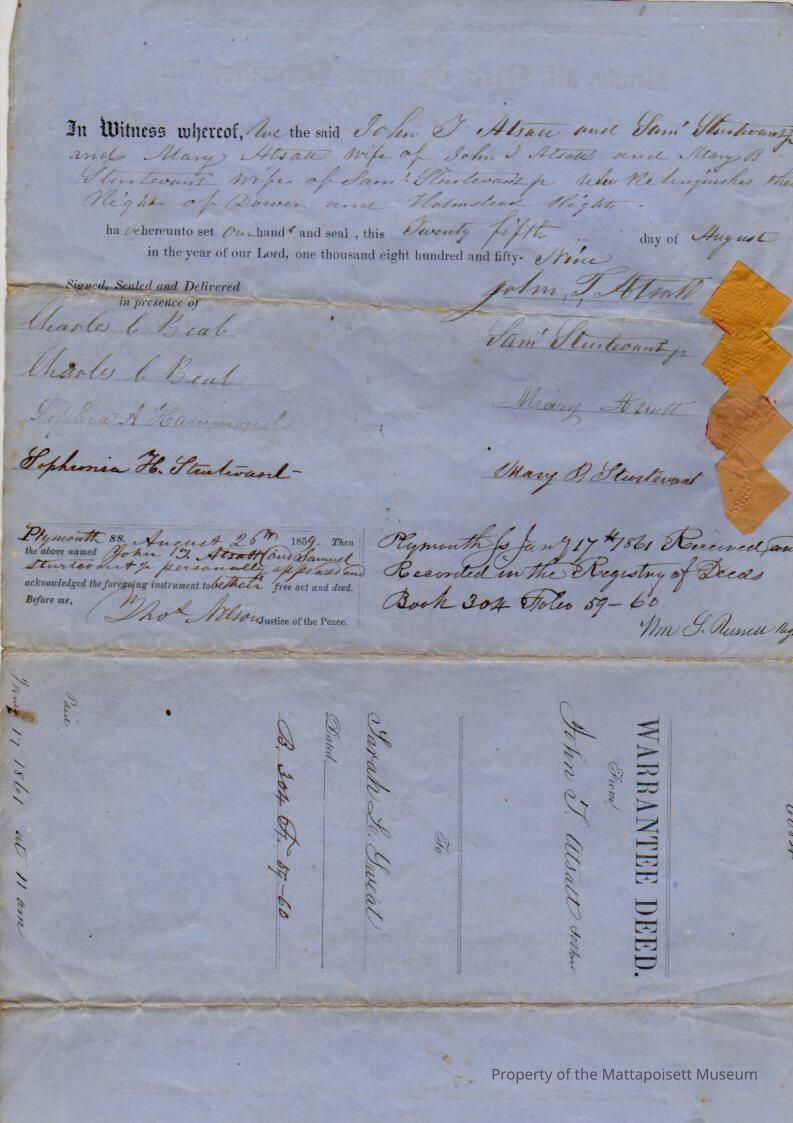 In Witness whereof, We the said John T Atsatt and Sam' Sturtevant jr
and Mary Atsatt wife of John T Atsatt and Mary B
Sturtevant wife of Sam' Sturtevant jr who Relinquishes their
Right of Dower and Homstead Right.
have hereunto set our hands and seal, this Twenty fifth day of August
in the year of our Lord, one thousand eight hundred and fifty- Nine
Signed, Sealed and Delivered
in presence of
John T. Atsatt
Charles C Beal
Sam' Sturtevant jr
Charles C Beal
Mary Atsatt
A Hammond
Sophronia H. Sturtevant
Mary B. Sturtevant
Plymouth ss. August 26th 1859. Then
the above named John T. Atsatt and Samuel
Sturtevant jr personally appeared and
acknowledged the foregoing instrument to be their free act and deed.
Before me,
Thos Nelson Justice of the Peace.
Plymouth ss Jany 17th 1861 Received, and
Recorded in the Registry of Deeds
Book 304 Folio 59-60
Wm S. Russell Reg
WARRANTEE DEED.
From
John T. Atsatt & others
To
Sarah L. Sweat
Dated
B. 304 F. 59-60
Paid
Jany 17 1861 at 11 am
Property of the Mattapoisett Museum